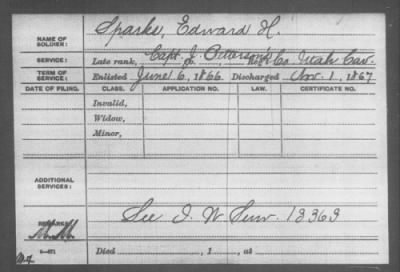 NAME OF SOLDIER: Sparks, Edward H.
SERVICE: Late rank, Capt. J. Co. Utah Cav.
TERM OF SERVICE: Enlisted June 6, 1866 Discharged Nov. 1, 1867
DATE OF FILING. CLASS. APPLICATION NO. CERTIFICATE NO.
Invalid,
Widow,
Minor,
ADDITIONAL SERVICES:
See I. W. Surv. 13363
REMARKS:
M.M.
Died , 1 , at